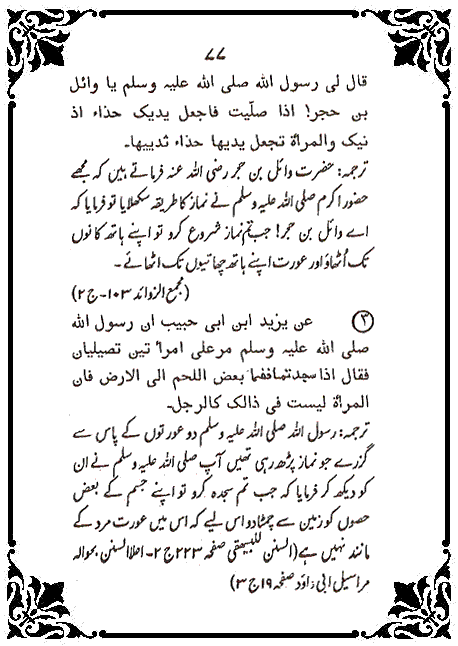 ۷۷
قال لی رسول اللہ صلی اللہ علیہ وسلم یا وائل
بن حجر! اذا صلّیت فاجعل یدیک حذاء اذ
نیک والمراۃ تجعل یدیھا حذاء ثدییھا۔
ترجمہ: حضرت وائل بن حجر رضی اللہ عنہ فرماتے ہیں کہ مجھے
حضور اکرم صلی اللہ علیہ وسلم نے نماز کا طریقہ سکھلایا تو فرمایا کہ
اے وائل بن حجر! جب تم نماز شروع کرو تو اپنے ہاتھ کانوں
تک اُٹھاؤ اور عورت اپنے ہاتھ چھاتیوں تک اٹھائے۔
(مجمع الزوائد ۱۰۳۔ ج ۲)
۳ عن یزید ابن ابی حبیب ان رسول اللہ
صلی اللہ علیہ وسلم مر علی امرأ تین تصیلیان
فقال اذا سجدتما فضما بعض اللحم الی الارض فان
المراۃ لیست فی ذالک کالرجل۔
ترجمہ: رسول اللہ صلی اللہ علیہ وسلم دو عورتوں کے پاس سے
گزرے جو نماز پڑھ رہی تھیں آپ صلی اللہ علیہ وسلم نے ان
کو دیکھ کر فرمایا کہ جب تم سجدہ کرو تو اپنے جسم کے بعض
حصوں کو زمین سے چمٹا دو اس لیے کہ اس میں عورت مرد کے
مانند نہیں ہے (السنن للبیھقی صفحہ ۲۲۳ ج ۲۔ اعلا السنن بحوالہ
مراسیل ابی داؤد صفحہ ۱۹ ج ۳)